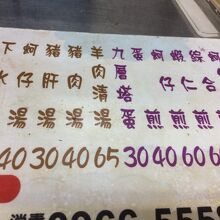 下水湯
蚵仔湯
豬肝湯
豬肉湯
羊肉清湯
九層塔蛋
蛋煎
蚵仔煎
蝦仁煎
綜合煎
40 30 40 65 30 40 60 60